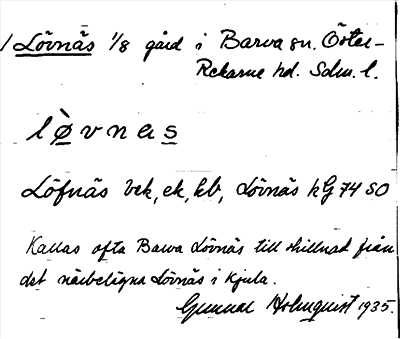 / Lövnäs 1/8 gård i Barva sn. Öster-
Rekarne hd. Sdm. l.
lø̀vnas
Löfnäs bek, ek, hb, Lövnäs kG 74 SO
Kallas ofta Barva Lövnäs till skillnad från
det närbelägna Lövnäs i Kjula.
Gunnar Holmquist 1935.